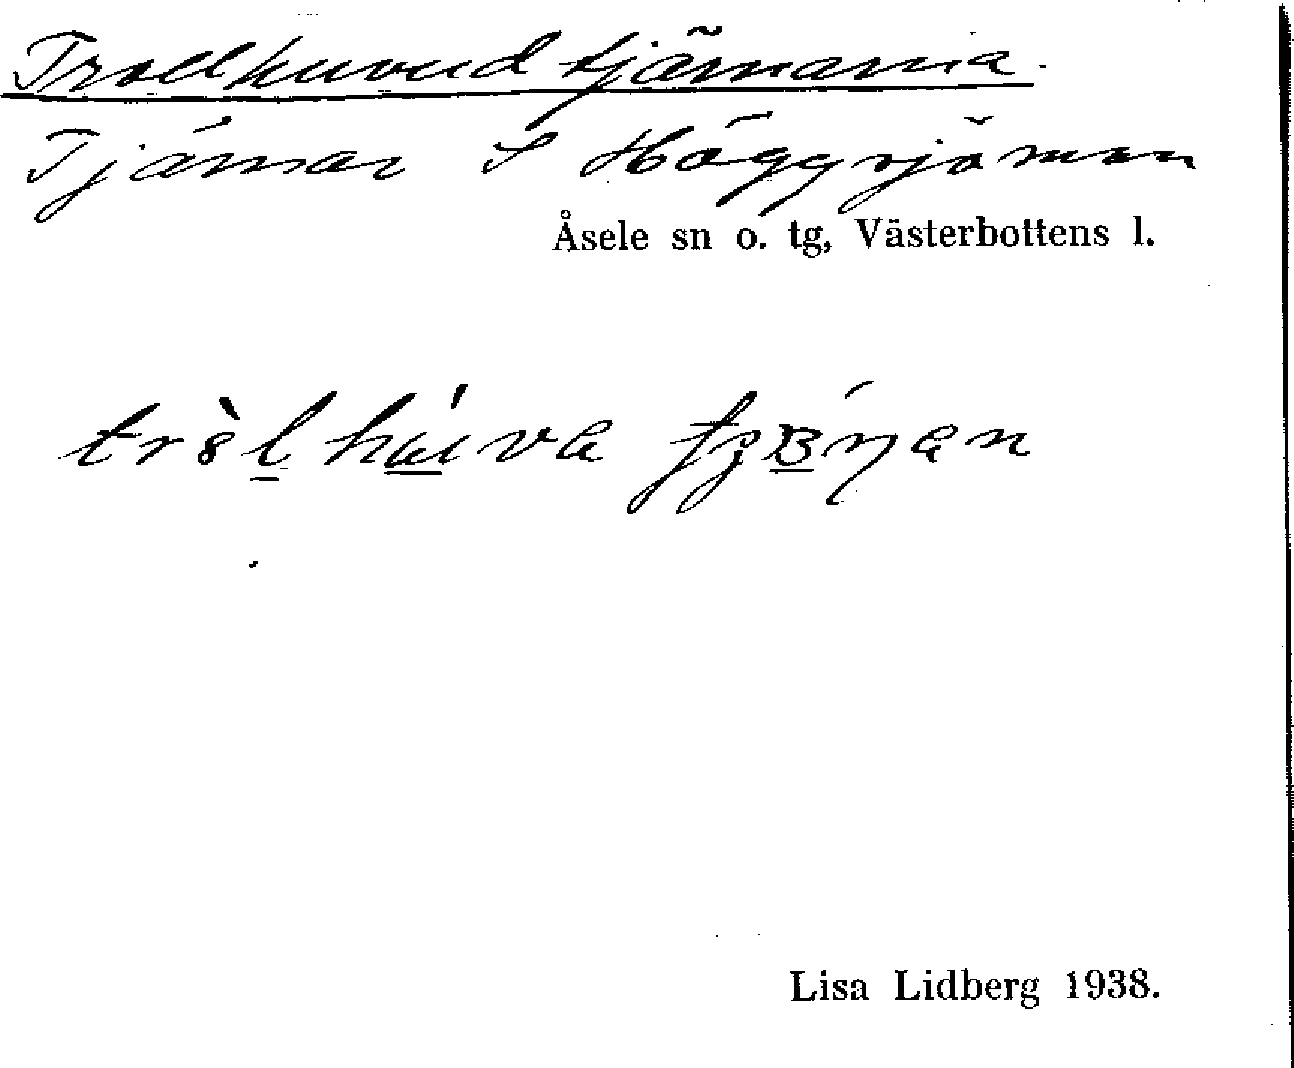 Trollhuvudtjärnarna.
Tjärnar S Höggsjömon
Åsele sn o. tg, Västerbottens l.
Lisa Lidberg 1938.